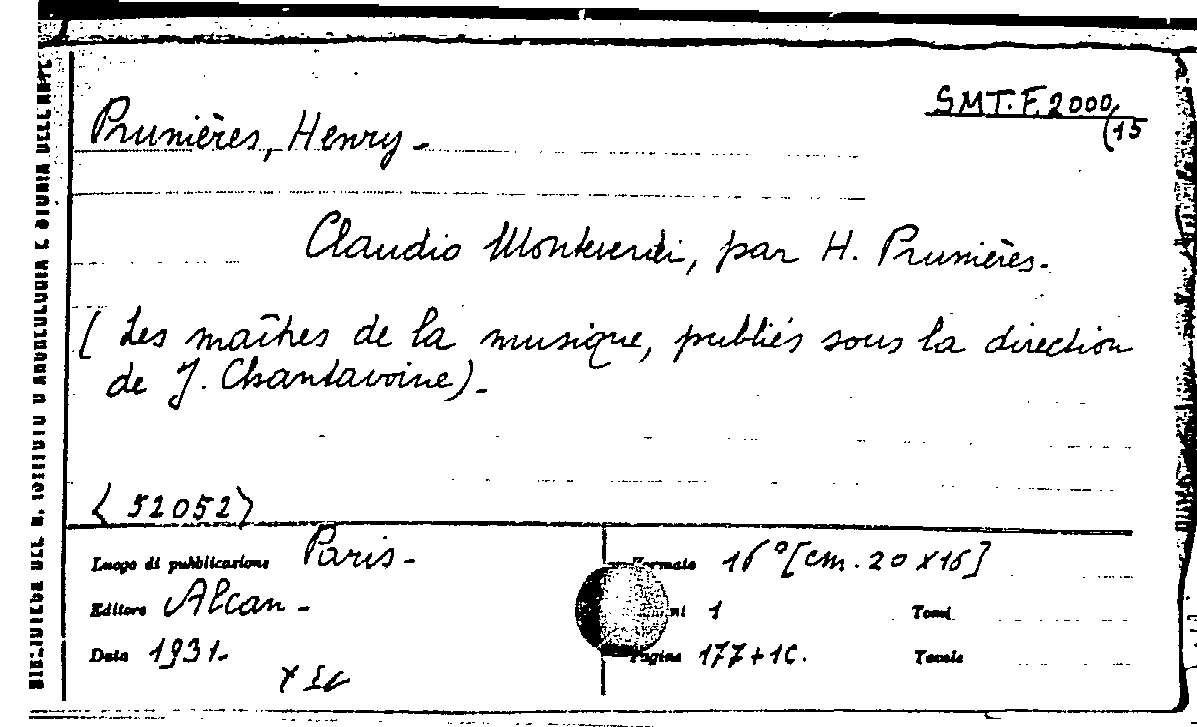 SMT. F. 2000/15
Prunières, Henry -
Claudio Monteverdi, par H. Prunières.
( Les maîtres de la musique, publiés sous la direction
de J. Chantavoine). -
< 52052 >
Luogo di pubblicazione Paris - Formato 16° [cm. 20 x 16]
Editore Alcan - 1 Tomi
Data 1931. - Pagine 177+1C. Tavole
BIBLIOTECA DEL R. ISTITUTO D'ARCHEOLOGIA E STORIA DELL'ARTE